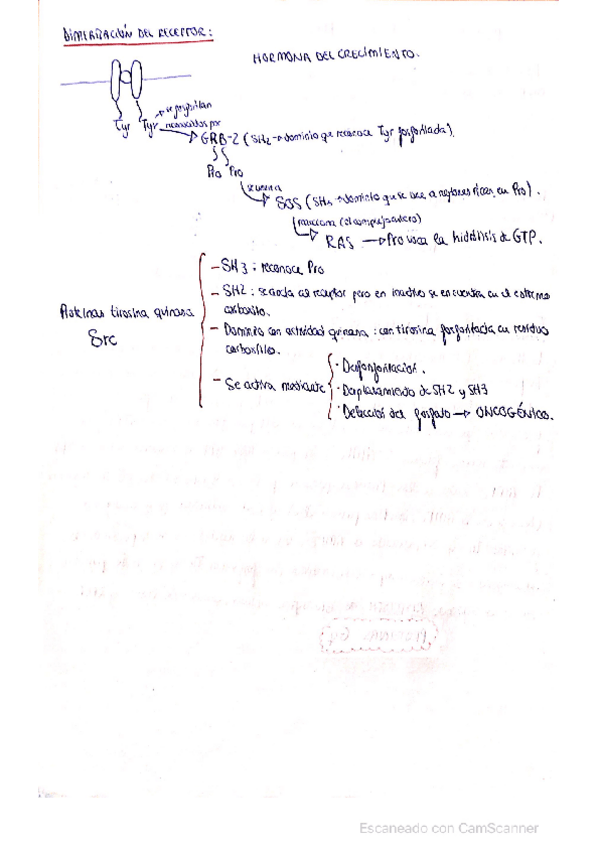 DIMERIZACIÓN DEL RECEPTOR:
HORMONA DEL CRECIMIENTO.
se fosforilan
Tyr Tyr reconocidos por
GRB-2 (SH2 → dominio que reconoce Tyr fosforilada).
Pro Pro
se une a
SOS (SH3 → dominio que se une a regiones ricas en Pro).
RAS → Provoca la hidrólisis de GTP.
Proteínas tirosina quinasa
Src
- SH3: reconoce Pro
- SH2: se ancla al receptor pero en inactivo se encuentra en el extremo
carboxilo.
- Dominio con actividad quinasa: con tirosina fosforilada en residuo
carboxilo.
- Se activa mediante
· Desfosforilación.
· Desplazamiento de SH2 y SH3
· Delección del fosfato → ONCOGÉNICO.
Escaneado con CamScanner